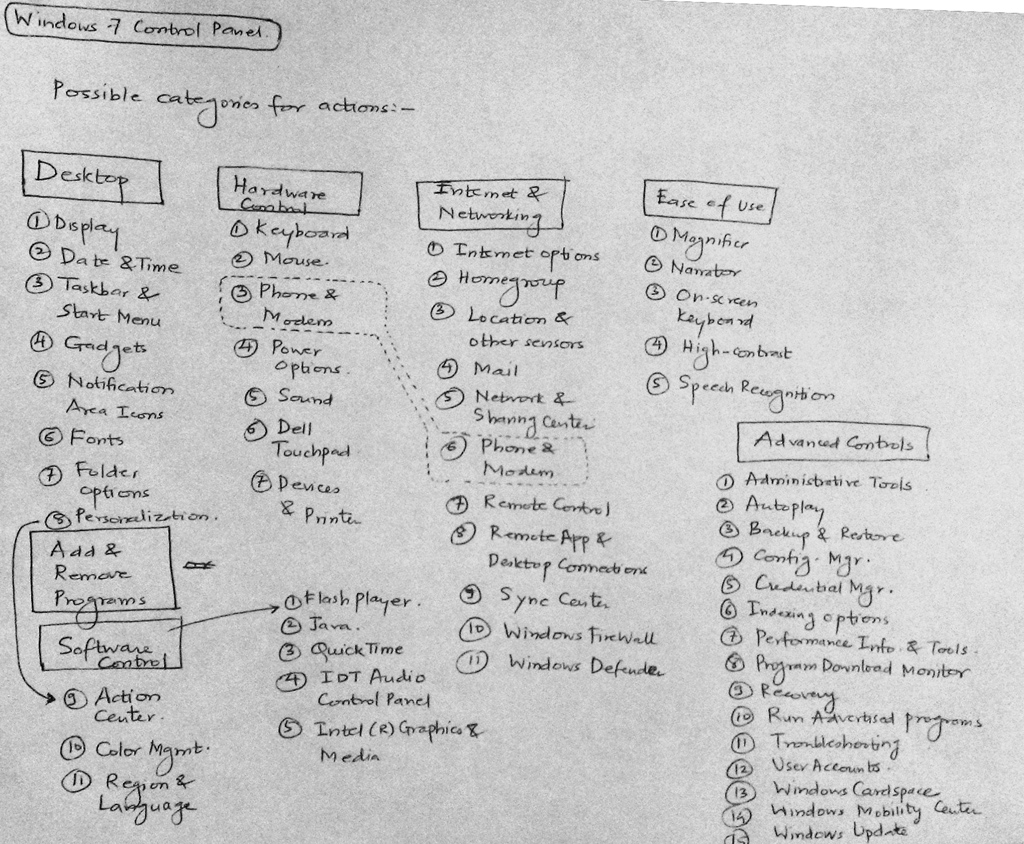 Windows 7 Control Panel.
Possible categories for actions:-
Desktop
① Display
② Date & Time
③ Taskbar &
Start Menu
④ Gadgets
⑤ Notification
Area Icons
⑥ Fonts
⑦ Folder
options
⑧ Personalization.
Add &
Remove
Programs
Software
Control
⑨ Action
Center.
⑩ Color Mgmt.
⑪ Region &
Language
Hardware
Control
① Keyboard
② Mouse.
③ Phone &
Modem
④ Power
Options.
⑤ Sound
⑥ Dell
Touchpad
⑦ Devices
& Printer
① Flash player.
② Java.
③ QuickTime
④ IDT Audio
Control Panel
⑤ Intel (R) Graphics &
Media
Internet &
Networking
① Internet options
② Homegroup
③ Location &
other sensors
④ Mail
⑤ Network &
Sharing Center
⑥ Phone &
Modem
⑦ Remote Control
⑧ Remote App &
Desktop Connections
⑨ Sync Center
⑩ Windows FireWall
⑪ Windows Defender
Ease of Use
① Magnifier
② Narrator
③ On-screen
Keyboard
④ High-contrast
⑤ Speech Recognition
Advanced Controls
① Administrative Tools
② Autoplay
③ Backup & Restore
④ Config. Mgr.
⑤ Credential Mgr.
⑥ Indexing options
⑦ Performance Info. & Tools.
⑧ Program Download Monitor
⑨ Recovery
⑩ Run Advertised programs
⑪ Troubleshooting
⑫ User Accounts.
⑬ Windows Cardspace
⑭ Windows Mobility Center
⑮ Windows Update